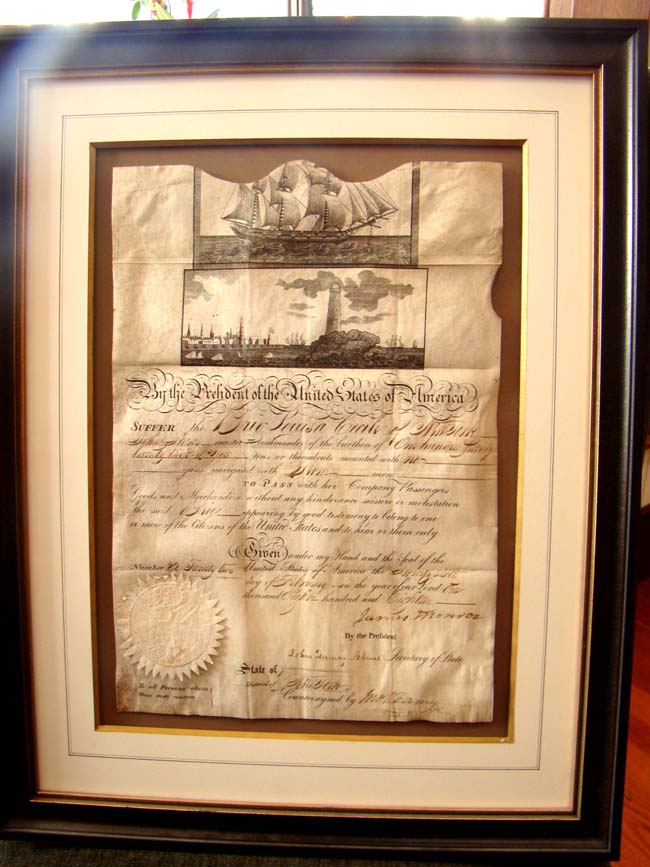 By the President of the United States of America
SUFFER the Brig Louisa Cecilia of New York
master or Commander of the burthen of One hundred Twenty
tons or thereabouts mounted with no
guns navigated with men
TO PASS with her Company Passengers
Goods and Merchandize without any hinderance seisure or molestation
the said Brig appearing by good testimony to belong to one
or more of the Citizens of the United States and to him or them only
Given under my Hand and the Seal of the
Number 22 Twenty two United States of America the
day of February in the year of our Lord One
thousand Eight hundred and Eighteen
James Monroe
By the President
John Quincy Adams Secretary of State
State of
District of New York
Countersigned by
To all Persons whom
these may concern